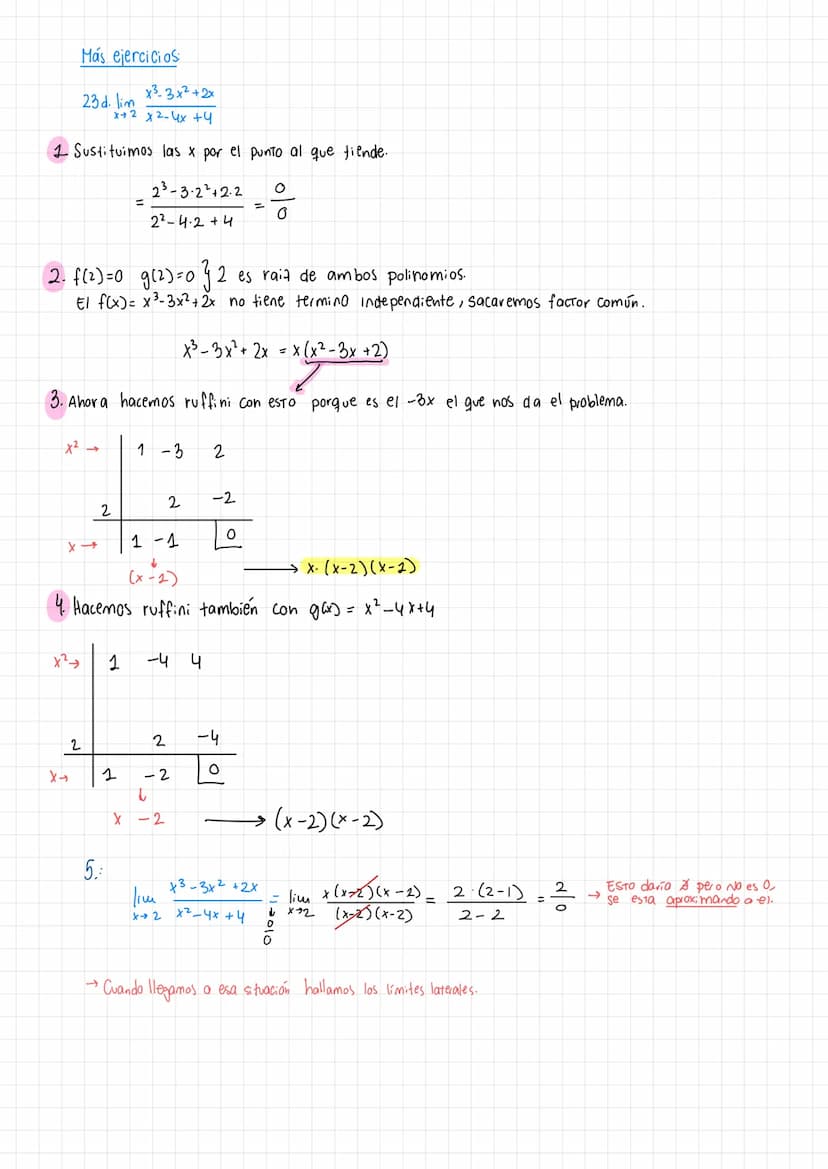 Más ejercicios:
23d. lim x→2 x³-3x²+2x / x²-4x+4
1 Sustituimos las x por el punto al que tiende.
= 2³-3·2²+2·2 / 2²-4·2+4 = 0/0
2. f(2)=0 g(2)=0 } 2 es raiz de ambos polinomios.
El f(x)= x³-3x²+2x no tiene termino independiente, sacaremos factor común.
x³-3x²+2x = x(x²-3x+2)
3. Ahora hacemos ruffini con esto porque es el -3x el que nos da el problema.
x² → 1 -3 2
2 2 -2
x → 1 -1 0
(x-2) → x·(x-2)(x-2)
4. Hacemos ruffini también con g(x) = x²-4x+4
x² → 1 -4 4
2 2 -4
x → 1 -2 0
x -2 → (x-2)(x-2)
5.:
lim x→2 x³-3x²+2x / x²-4x+4 = 0/0 lim x→2 x(x-2)(x-1) / (x-2)(x-2) = 2·(2-1) / 2-2 = 2/0 → Esto daría ∄ pero no es 0,
se esta aproximando a el.
→ Cuando llegamos a esa situación hallamos los límites laterales.